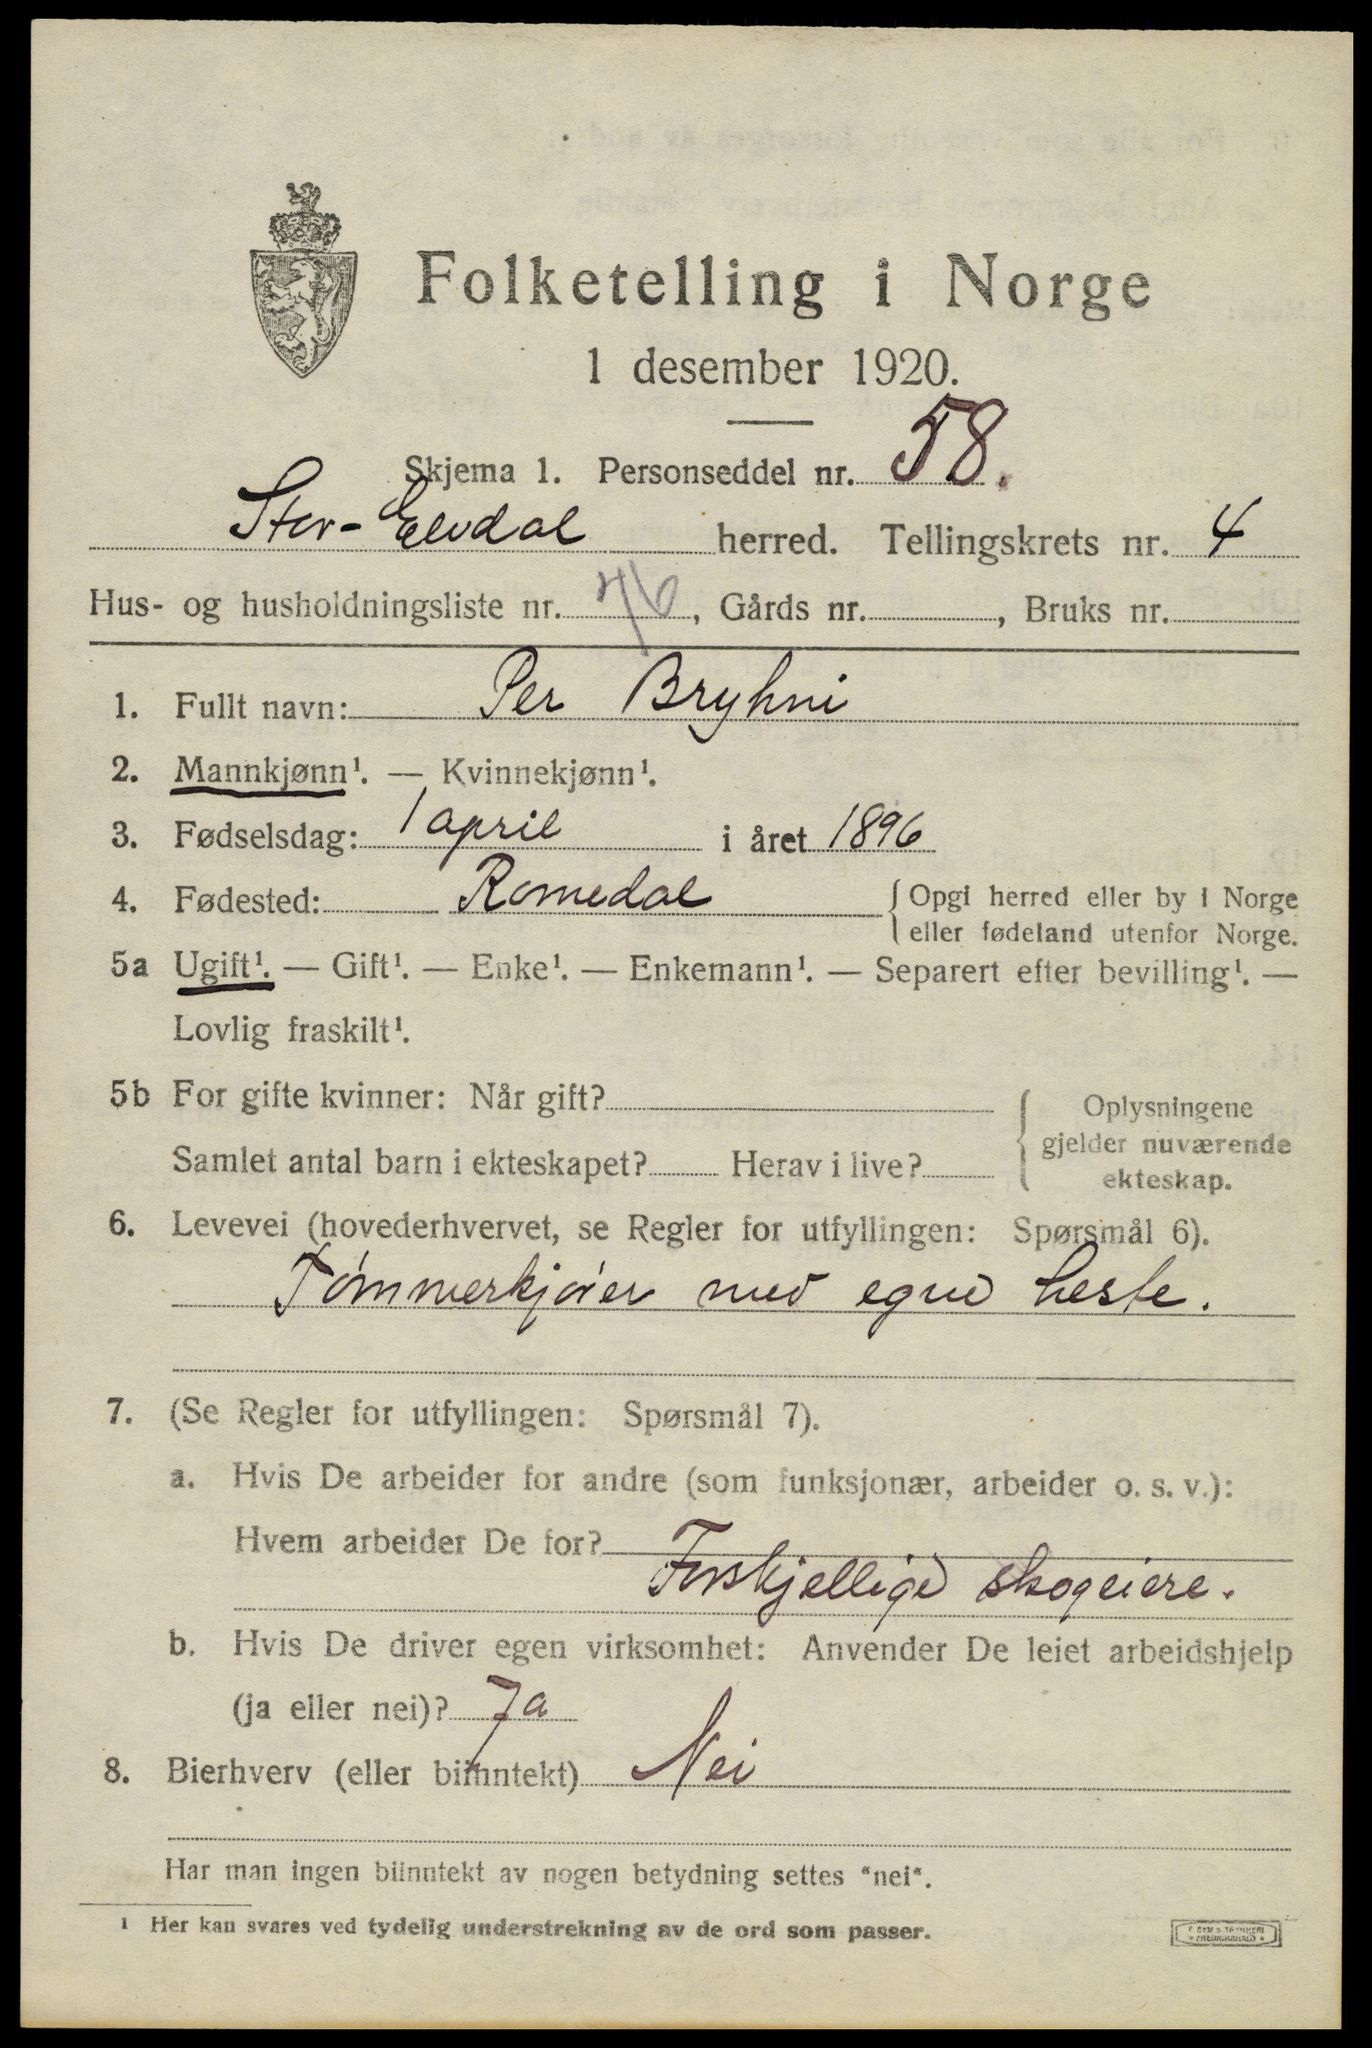 Folketelling i Norge
1 desember 1920.
Skjema 1. Personseddel nr. 58.
Stor-Elvdal herred. Tellingskrets nr. 4
Hus- og husholdningsliste nr. 76, Gårds nr. , Bruks nr.
1. Fullt navn: Per Bryhni
2. Mannkjønn¹. — Kvinnekjønn¹.
3. Fødselsdag: 1 april i året 1896
4. Fødested: Romedal { Opgi herred eller by i Norge
eller fødeland utenfor Norge.
5a Ugift¹. — Gift¹. — Enke¹. — Enkemann¹. — Separert efter bevilling¹. —
Lovlig fraskilt¹.
5b For gifte kvinner: Når gift? { Oplysningene
gjelder nuværende
Samlet antal barn i ekteskapet? Herav i live?
ekteskap.
6. Levevei (hovederhvervet, se Regler for utfyllingen: Spørsmål 6).
Tømmerkjører med egne heste.
7. (Se Regler for utfyllingen: Spørsmål 7).
a. Hvis De arbeider for andre (som funksjonær, arbeider o. s. v.):
Hvem arbeider De for?
Forskjellige skogeiere.
b. Hvis De driver egen virksomhet: Anvender De leiet arbeidshjelp
(ja eller nei)? Ja
8. Bierhverv (eller biinntekt) Nei
Har man ingen biinntekt av nogen betydning settes "nei".
¹ Her kan svares ved tydelig understrekning av de ord som passer.